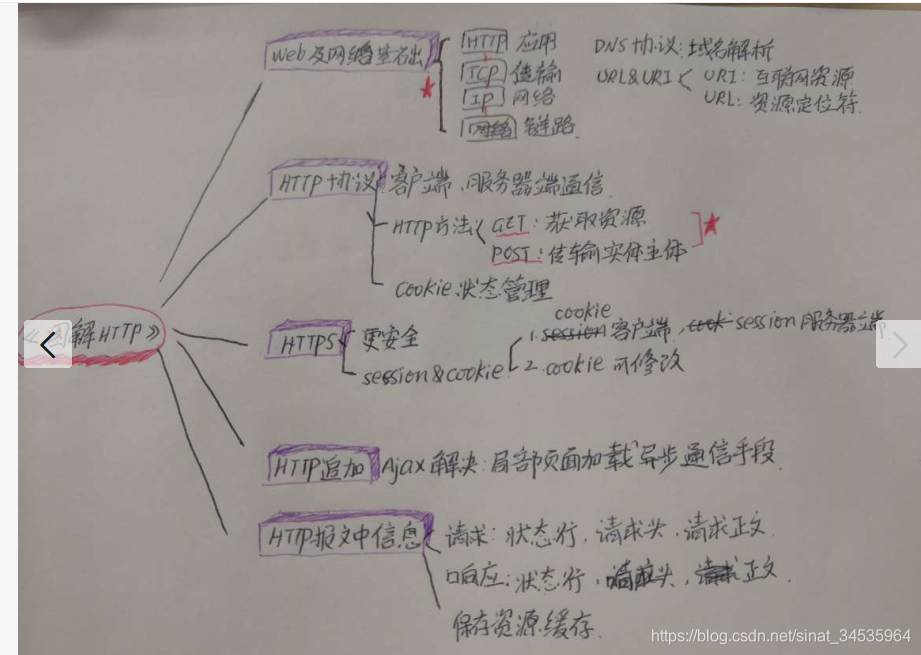 《图解HTTP》
Web及网络基础
HTTP 应用
TCP 传输
IP 网络
网络 链路
DNS协议:域名解析
URL&URI
URI:互联网资源
URL:资源定位符
HTTP协议
客户端、服务器端通信
HTTP方法
GET:获取资源
POST:传输实体主体
cookie状态管理
HTTPS
更安全
session&cookie
cookie
1.session 客户端, cook session 服务器端
2.cookie 可修改
HTTP追加
Ajax 解决:局部页面加载异步通信手段
HTTP报文中信息
请求:状态行,请求头,请求正文
响应:状态行,响应头,请求正文
保存资源:缓存
https://blog.csdn.net/sinat_34535964